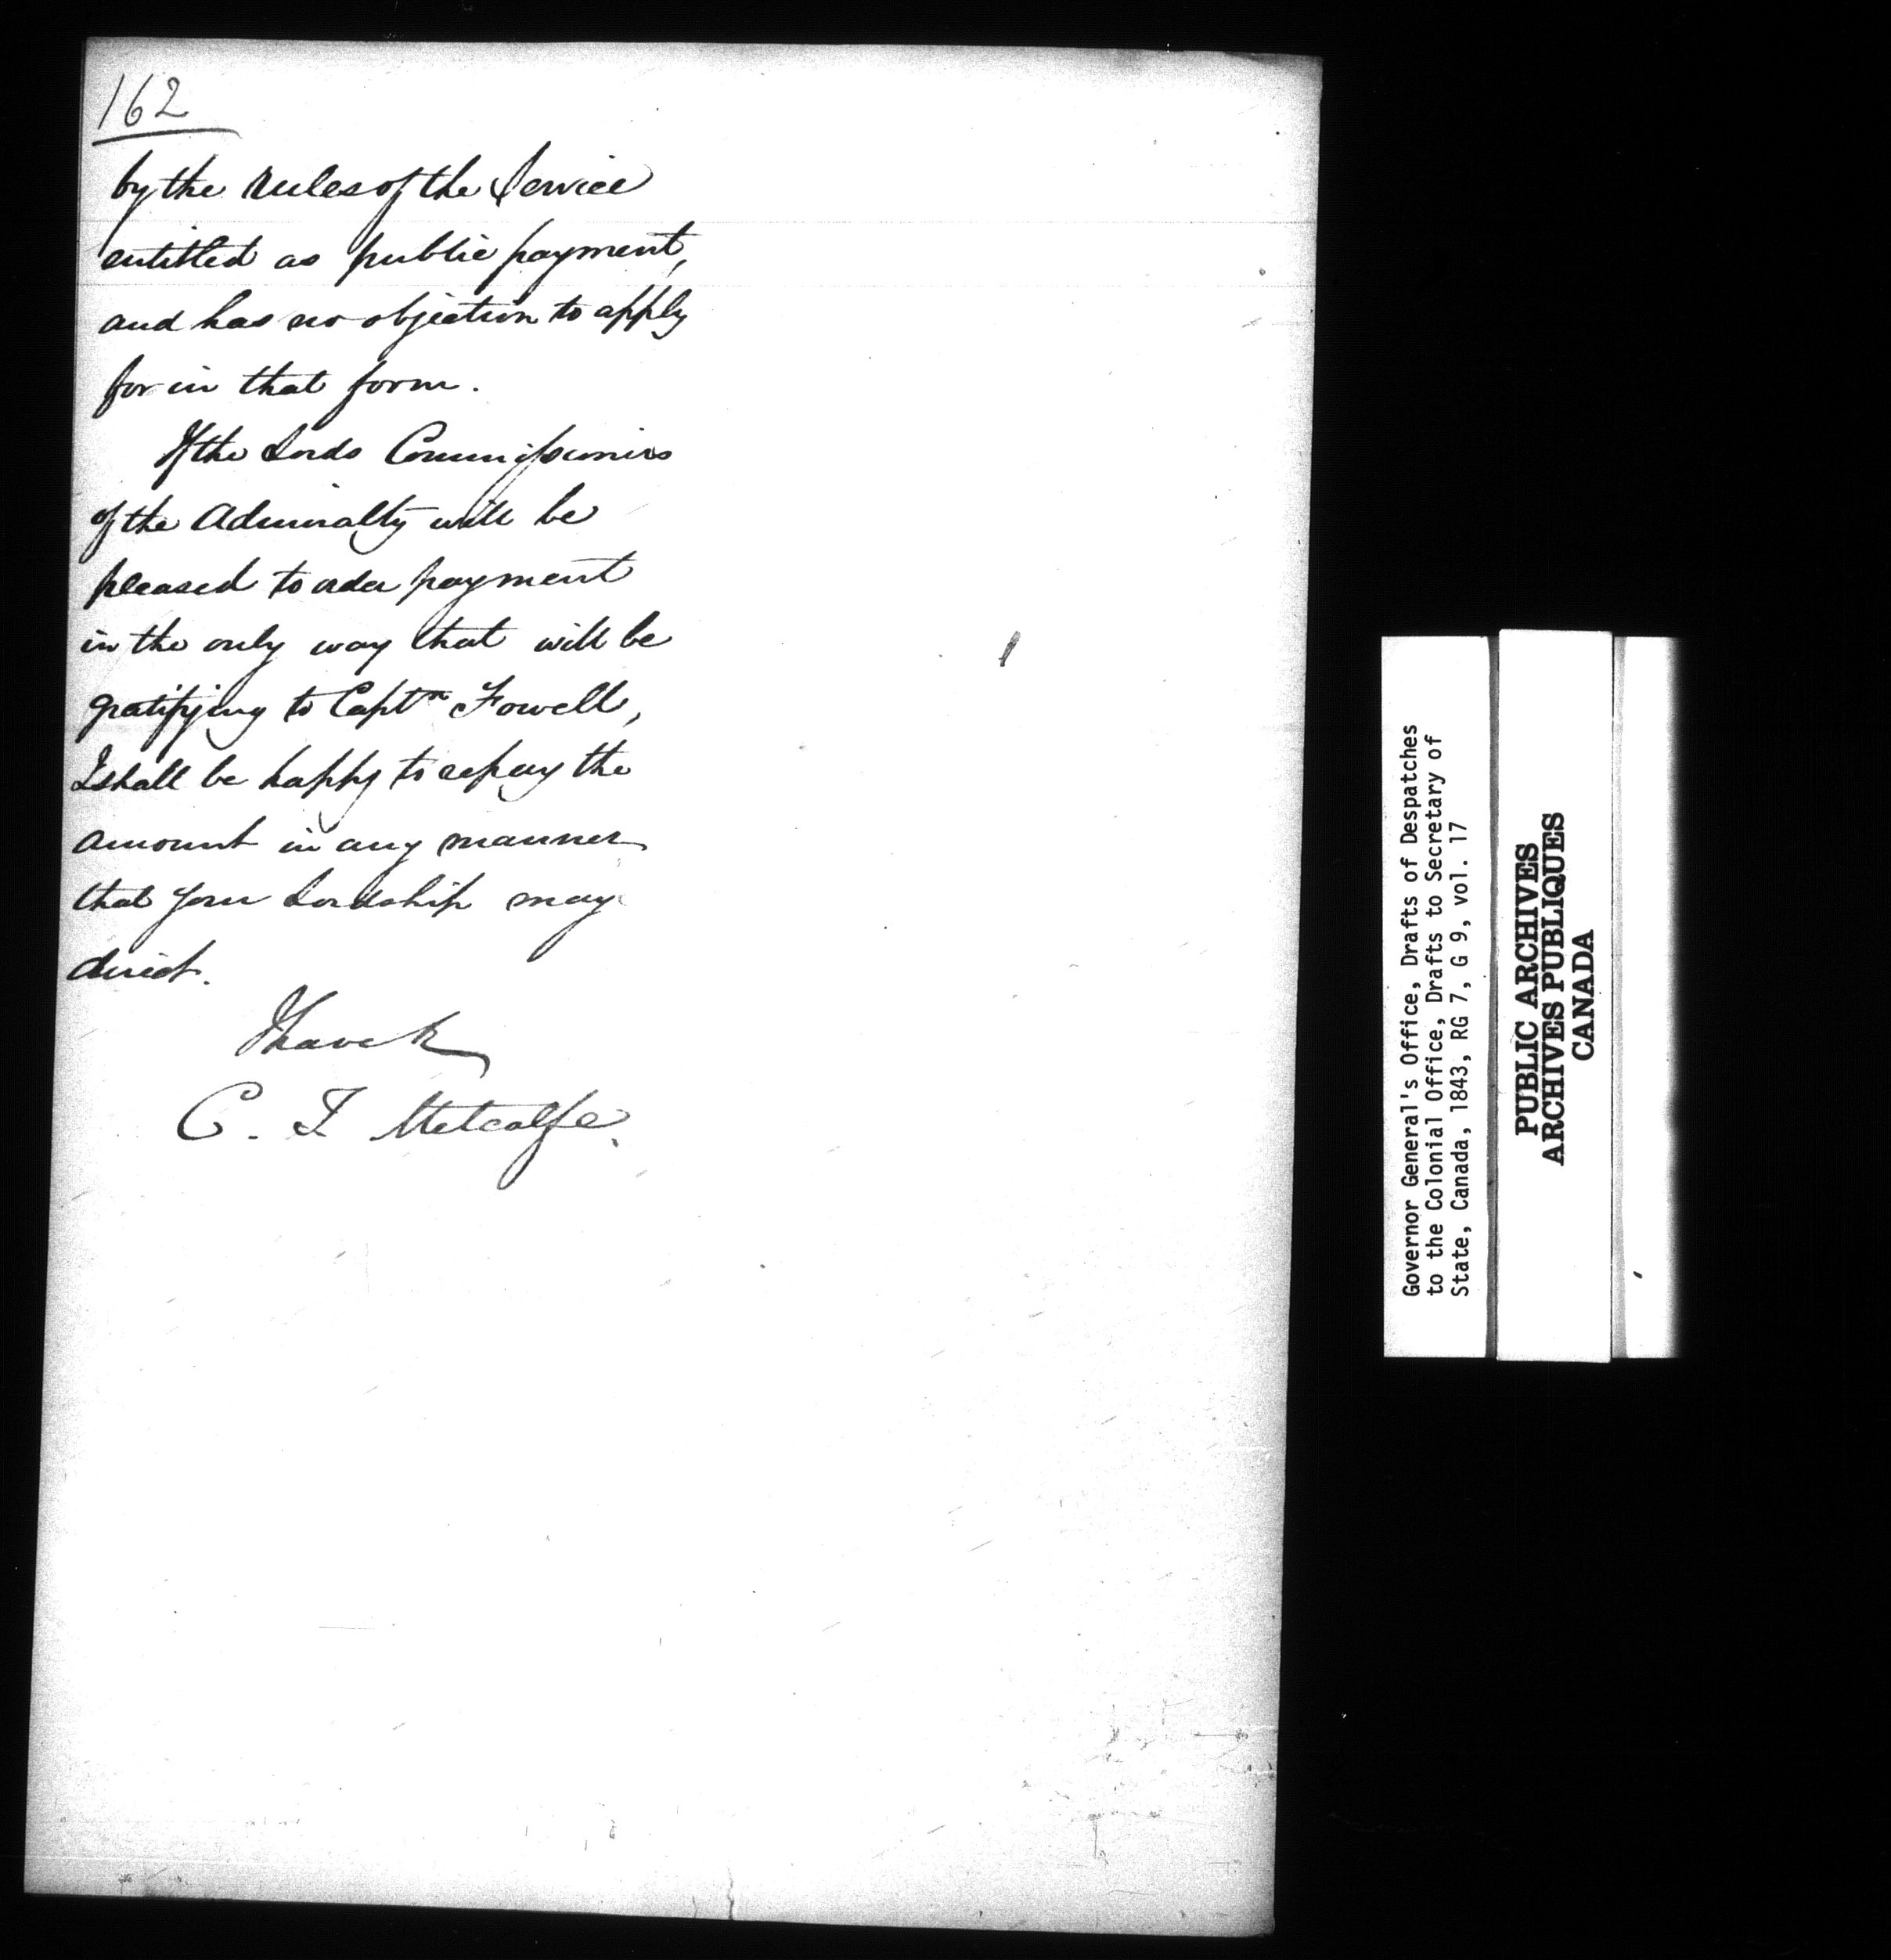 162
by the rules of the Service
entitled as public payment,
and has no objection to apply
for in that form.
If the Lords Commissioners
of the Admiralty will be
pleased to order payment
in the only way that will be
gratifying to Captn Fowell,
I shall be happy to repay the
amount in any manner
that your Lordship may
direct.
I have &
C. T Metcalfe.
Governor General's Office, Drafts of Despatches
to the Colonial Office, Drafts to Secretary of
State, Canada, 1843, RG 7, G 9, vol. 17
PUBLIC ARCHIVES
ARCHIVES PUBLIQUES
CANADA